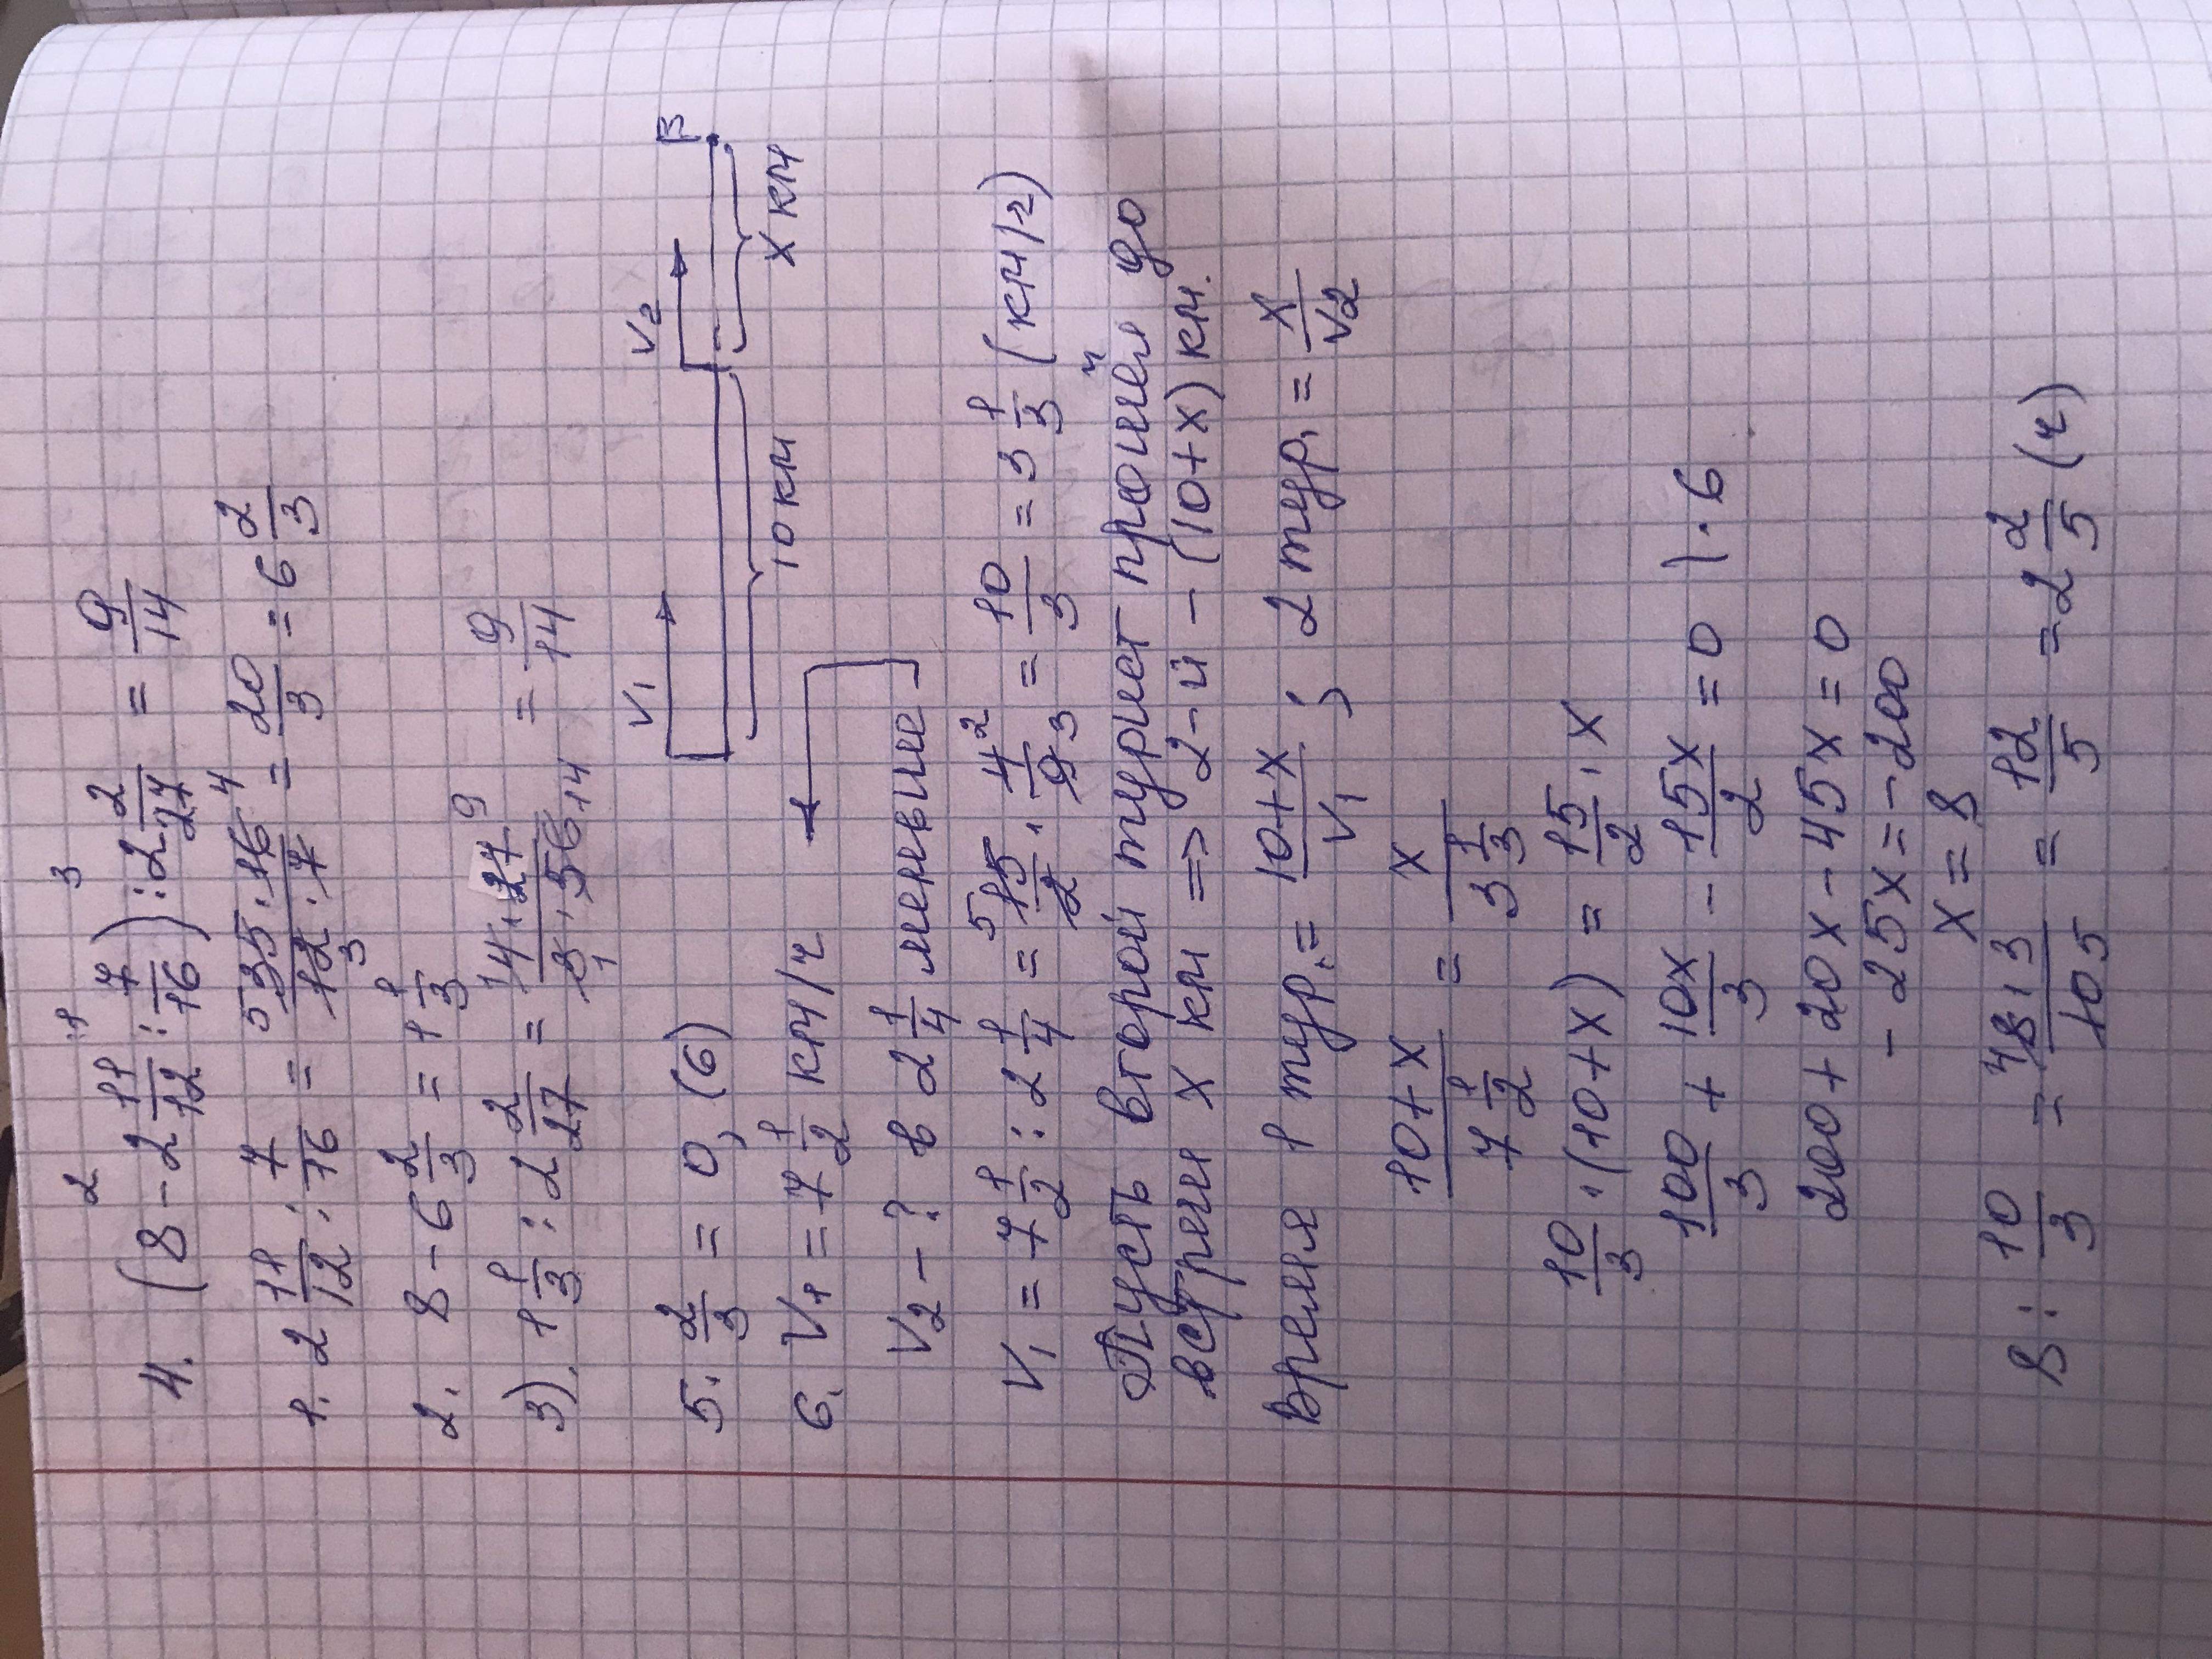 2 1 3
4. (8 - 2 11/12 : 7/16) : 2 2/27 = 9/14
1. 2 11/12 : 7/16 = 35 · 16/12 · 7 = 20/3 = 6 2/3
2. 8 - 6 2/3 = 1 1/3
3). 1 1/3 : 2 2/27 = 4 · 27/3 · 56 = 9/14
5. 2/3 = 0,(6)
V1 V2 B
10 км x км
6. V1 = 7 1/2 км/ч
V2 - ? в 2 1/4 меньше
V1 = 7 1/2 : 2 1/4 = 15/2 · 4/9 = 10/3 = 3 1/3 (км/ч)
Пусть второй турист пройдём до
встречи x км => 2-й - (10+x) км.
Время 1 тур. = 10+x/V1 ; 2 тур. = x/V2
10+x/7 1/2 = x/3 1/3
10/3 · (10+x) = 15/2 · x
100/3 + 10x/3 - 15x/2 = 0 | · 6
200 + 20x - 45x = 0
- 25x = -200
x = 8
8 : 10/3 = 8 · 3/10 = 12/5 = 2 2/5 (ч)